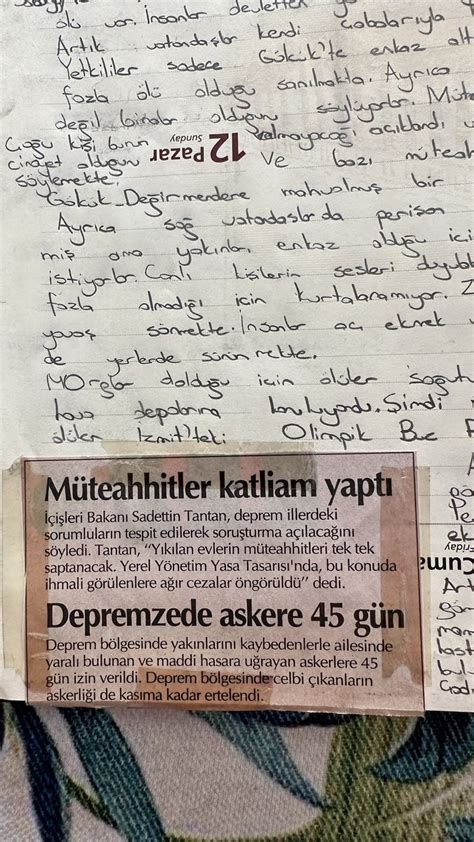 ölü var. İnsanlar devletten
Artık vatandaşlar kendi çabalarıyla
Yetkililer sadece Gölcük'te enkaz alt
fazla ölü olduğu sanılmakta. Ayrıca
değil binalar olduğunu söylüyorlar. Müte
Çoğu kişi bunun
cinayet olduğunu
söylemekte.
12 Pazar
Sunday
kalmayacağı açıklandı
Ve bazı müteah
Gölcük Değirmendere mahvolmuş bir
Ayrıca sağ vatandaşlar da perişan
miş ama yakınları enkaz olduğu içi
istiyorlar. Canlı kişilerin sesleri duyulu
fazla olmadığı için kurtaramıyor.
yavaş sönmekte. İnsanlar acı ekmek
de yerlerde sürünmekte.
Morglar dolduğu için ölüler soğut
hava depolarına konuluyordu. Şimdi
ölüler İzmit'teki Olimpik Buz
Müteahhitler katliam yaptı
İçişleri Bakanı Sadettin Tantan, deprem illerdeki
sorumluların tespit edilerek soruşturma açılacağını
söyledi. Tantan, "Yıkılan evlerin müteahhitleri tek tek
saptanacak. Yerel Yönetim Yasa Tasarısı'nda, bu konuda
ihmali görülenlere ağır cezalar öngörüldü" dedi.
Depremzede askere 45 gün
Deprem bölgesinde yakınlarını kaybedenlerle ailesinde
yaralı bulunan ve maddi hasara uğrayan askerlere 45
gün izin verildi. Deprem bölgesinde celbi çıkanların
askerliği de kasıma kadar ertelendi.
Friday
Cuma